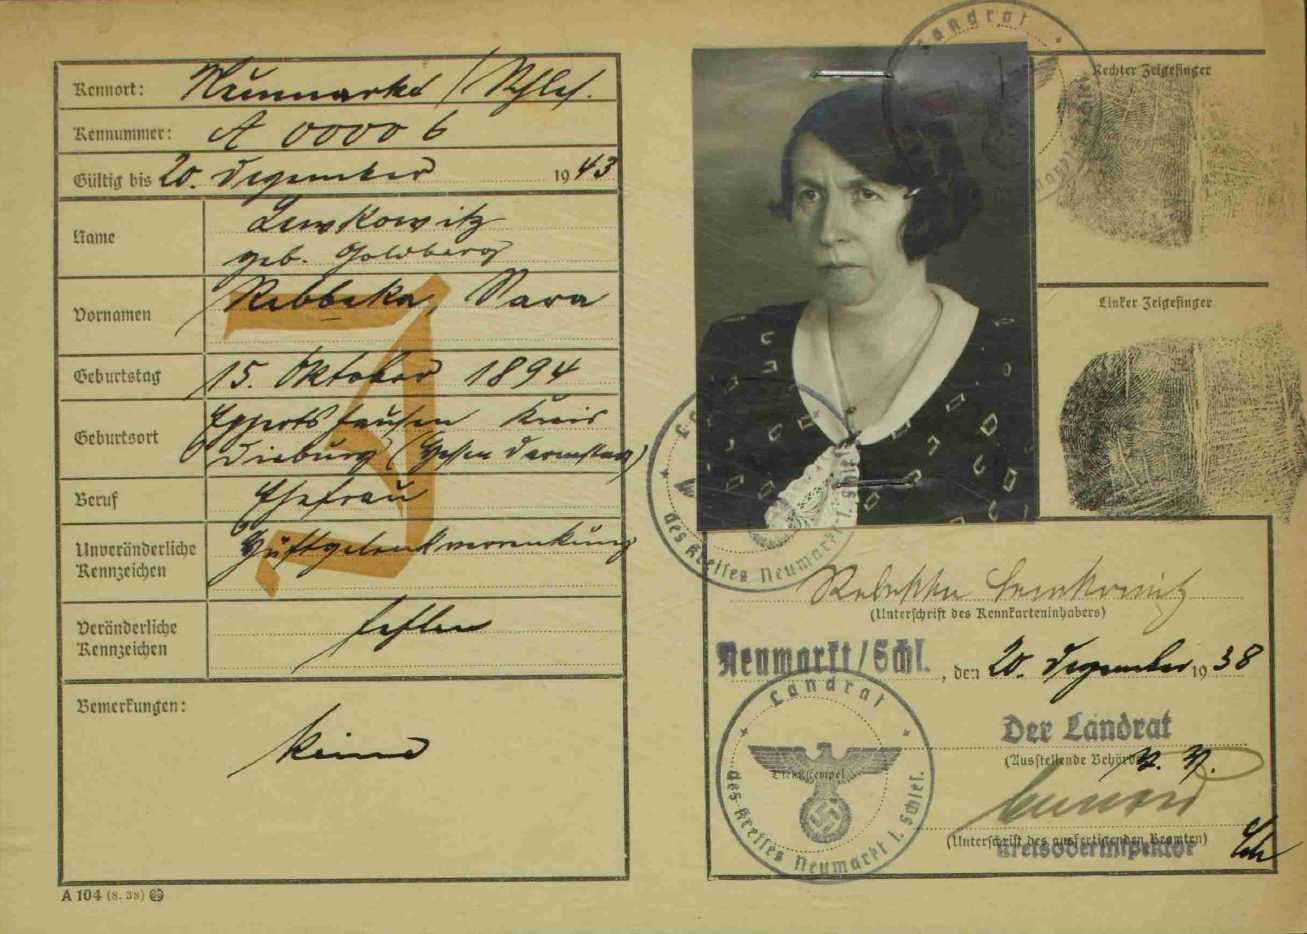 Kennort: Neumarkt / Schles.
Kennummer: A 00006
Gültig bis 20. Dezember 1943
Name Lewkowitz
geb. Goldberg
Vornamen Rebbeka, Sara
Geburtstag 15. Oktober 1894
Geburtsort Eppertshausen Kreis
Dieburg (Hessen Darmstadt)
Beruf Ehefrau
Unveränderliche Kennzeichen Hüftgelenkverrenkung
Veränderliche Kennzeichen fehlen
Bemerkungen:
keine
J
A 104 (8. 38)
Landrat
Rechter Zeigefinger
Linker Zeigefinger
des Kreises Neumarkt i. Schles.
Rebekka Lewkowitz
(Unterschrift des Kennkarteninhabers)
Neumarkt/Schl., den 20. Dezember 1938
Landrat
des Kreises Neumarkt i. Schles.
Dienststempel
Der Landrat
(Ausstellende Behörde)
(Unterschrift des ausfertigenden Beamten)
Kreisoberinspektor